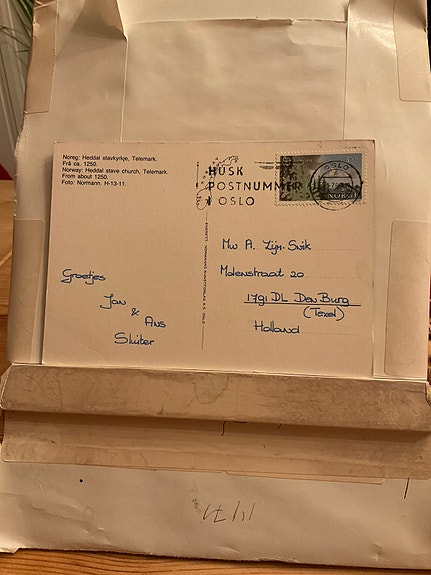 Noreg: Heddal stavkyrkje, Telemark.
Frå ca. 1250.
Norway: Heddal stave church, Telemark.
From about 1250.
Foto: Normann. H-13-11.
HUSK
POSTNUMMER
I OSLO
OSLO
NORGE
ENERETT: NORMANNS KUNSTFORLAG A.S. OSLO
Mw A. Zijm. Snik
Molenstraat 20
1791 DL Den Burg
(Texel)
Holland
Groetjes
Jan
&
Ans
Sluiter